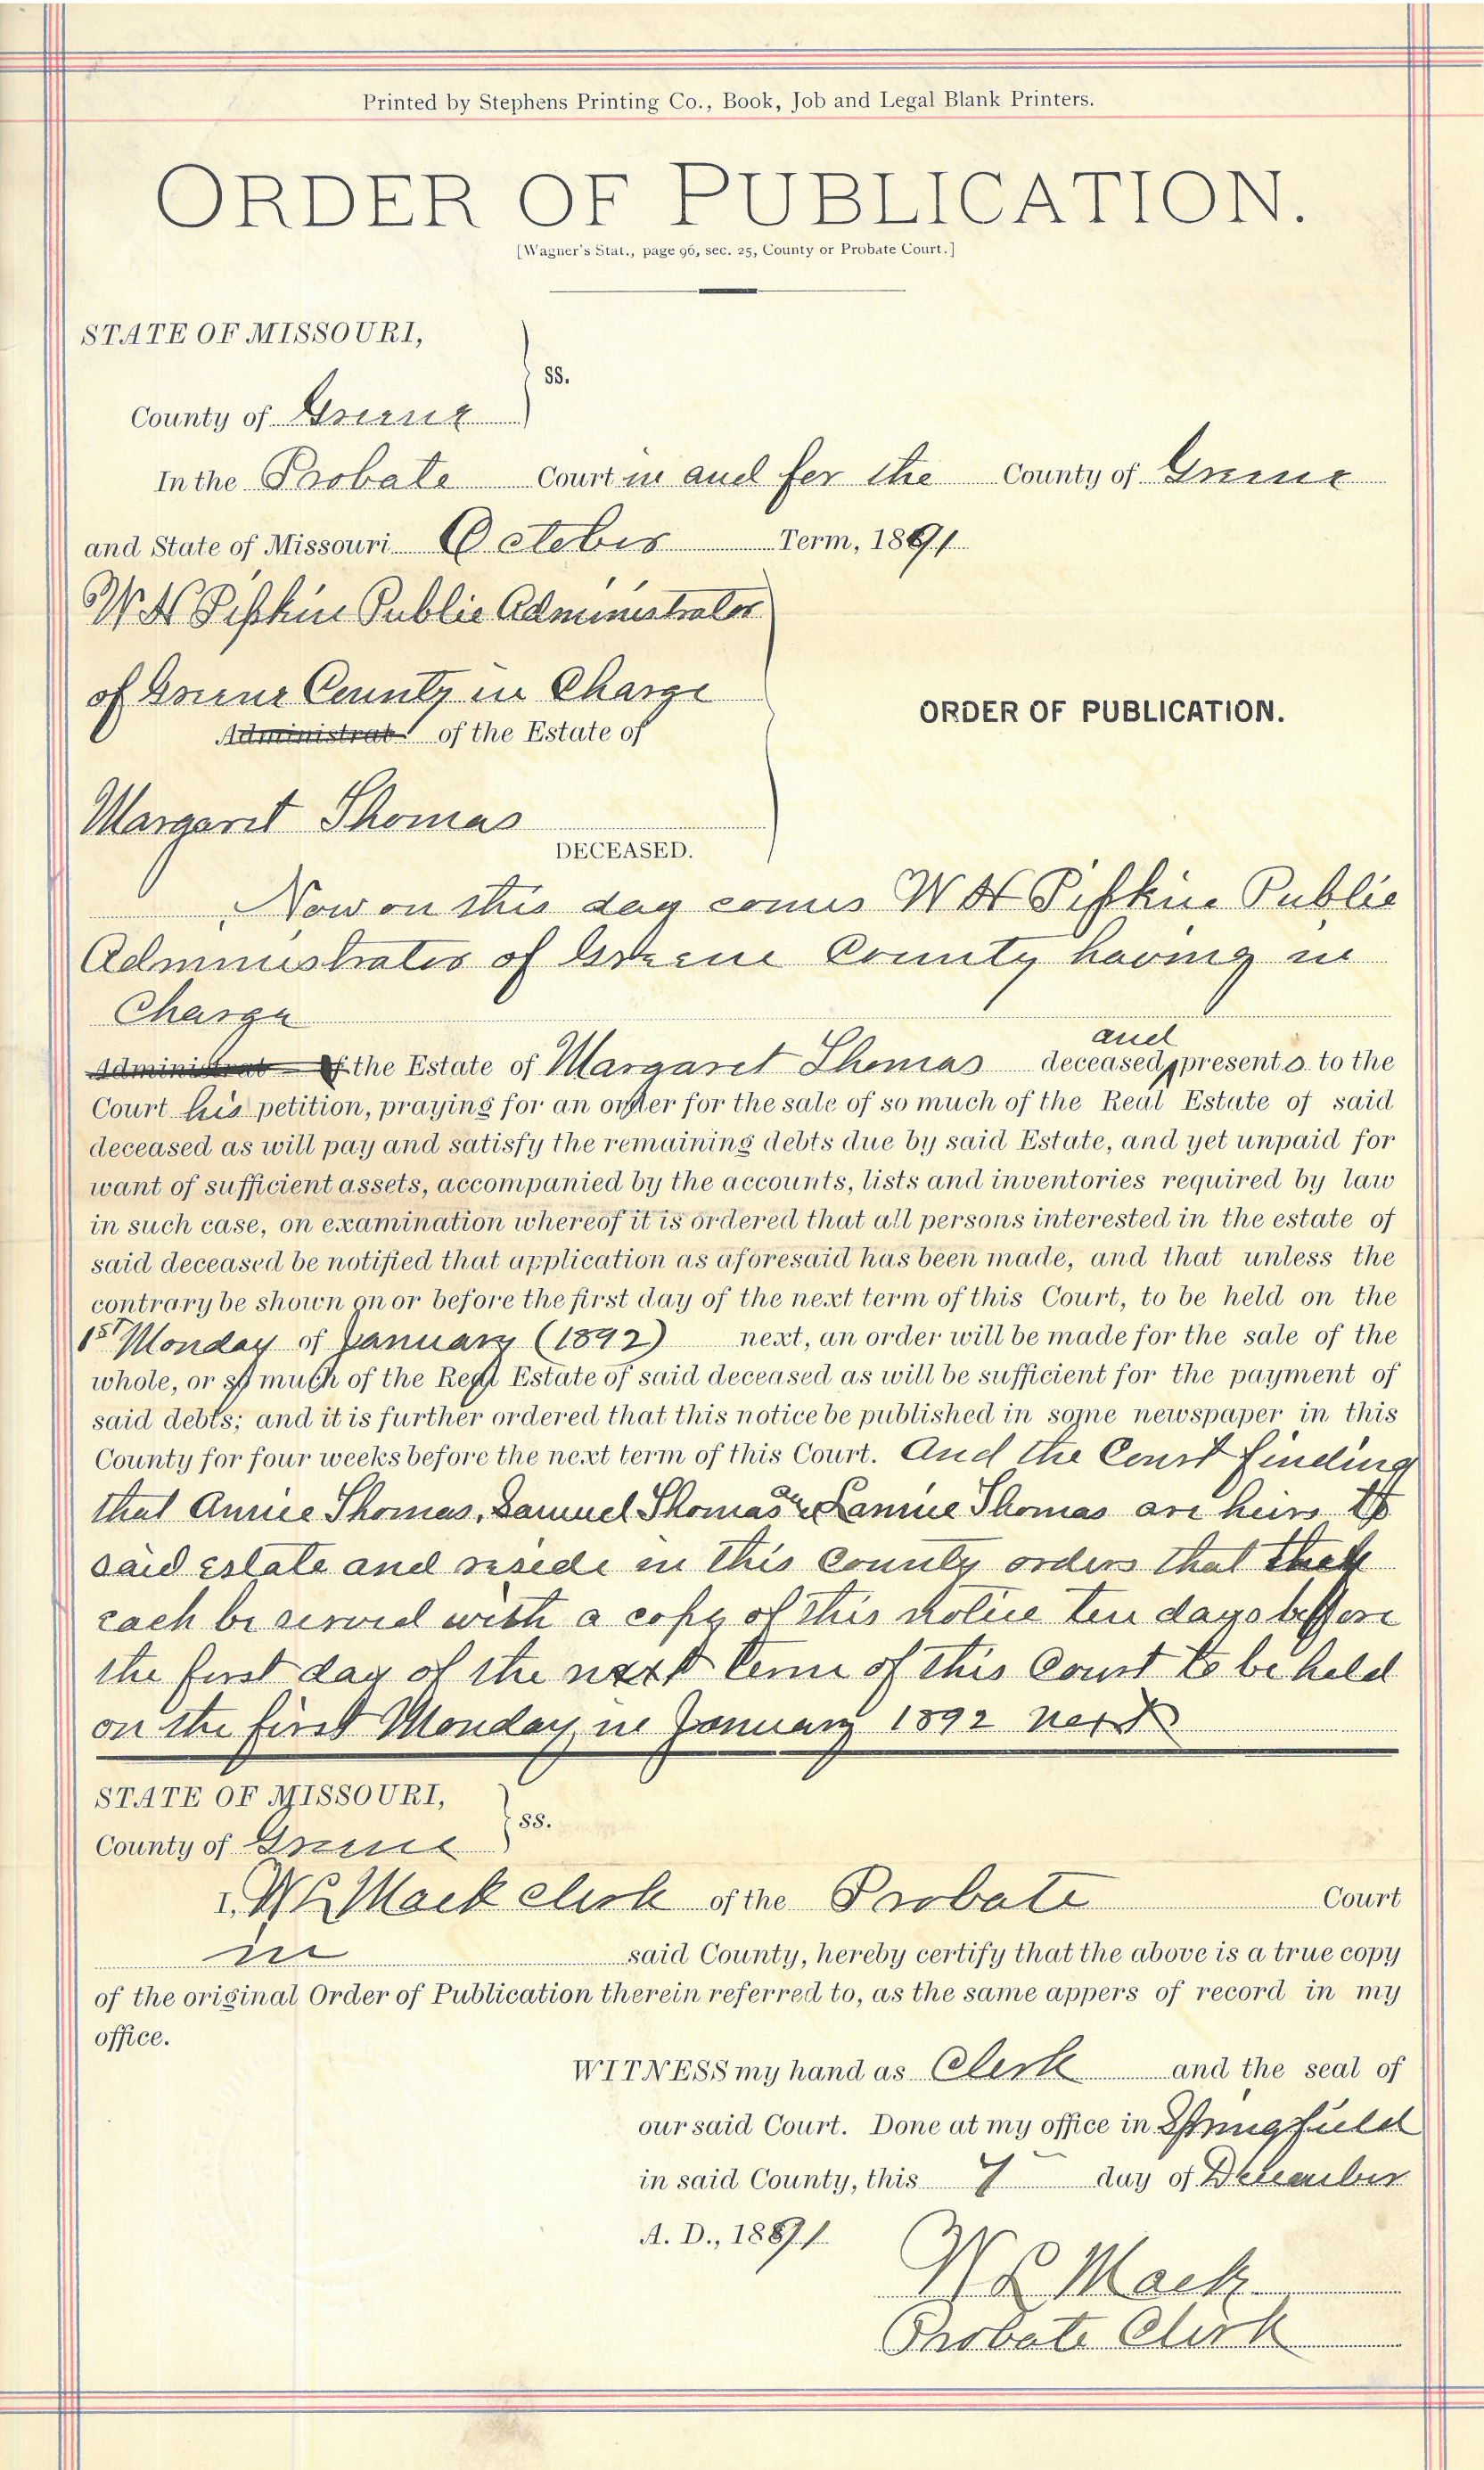 Printed by Stephens Printing Co., Book, Job and Legal Blank Printers.
ORDER OF PUBLICATION.
[Wagner's Stat., page 96, sec. 25, County or Probate Court.]
STATE OF MISSOURI,
ss.
County of Greene
In the Probate Court in and for the County of Greene
and State of Missouri October Term, 1891
W H Pipkin Public Administrator
of Greene County in Charge
ORDER OF PUBLICATION.
Administrat of the Estate of
Margaret Thomas
DECEASED.
Now on this day comes W H Pipkin Public
Administrator of Greene County having in
Charge
and
Administrat of the Estate of Margaret Thomas deceased, presents to the
Court his petition, praying for an order for the sale of so much of the Real Estate of said
deceased as will pay and satisfy the remaining debts due by said Estate, and yet unpaid for
want of sufficient assets, accompanied by the accounts, lists and inventories required by law
in such case, on examination whereof it is ordered that all persons interested in the estate of
said deceased be notified that application as aforesaid has been made, and that unless the
contrary be shown on or before the first day of the next term of this Court, to be held on the
1st Monday of January (1892) next, an order will be made for the sale of the
whole, or so much of the Real Estate of said deceased as will be sufficient for the payment of
said debts; and it is further ordered that this notice be published in some newspaper in this
County for four weeks before the next term of this Court. And the Court finding
that Annie Thomas, Samuel Thomas & Lannie Thomas are heirs to
said estate and reside in this County orders that they
each be served with a copy of this notice ten days before
the first day of the next term of this Court to be held
on the first Monday in January 1892 next
STATE OF MISSOURI,
ss.
County of Greene
I, W L Mack clerk of the Probate Court
in said County, hereby certify that the above is a true copy
of the original Order of Publication therein referred to, as the same appers of record in my
office.
WITNESS my hand as Clerk and the seal of
our said Court. Done at my office in Springfield
in said County, this 7 day of December
A. D., 1891
W L Mack
Probate Clerk